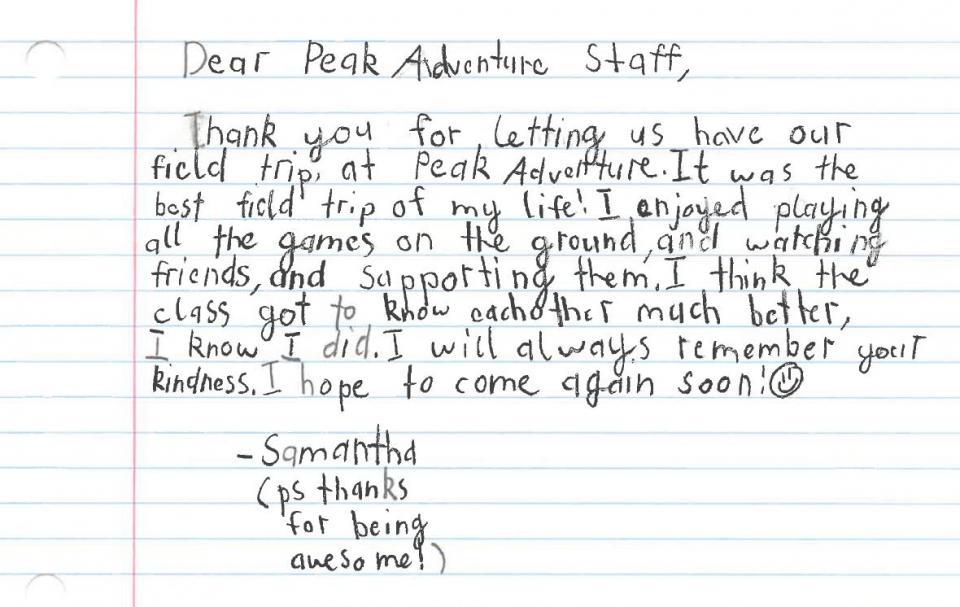 Dear Peak Adventure Staff,
Thank you for letting us have our
field trip, at Peak Adventure. It was the
best field trip of my life! I enjoyed playing
all the games on the ground, and watching
friends, and supporting them. I think the
class got to know eachother much better,
I know I did. I will always remember your
kindness. I hope to come again soon! ☺
- Samantha
(ps thanks
for being
awesome!)